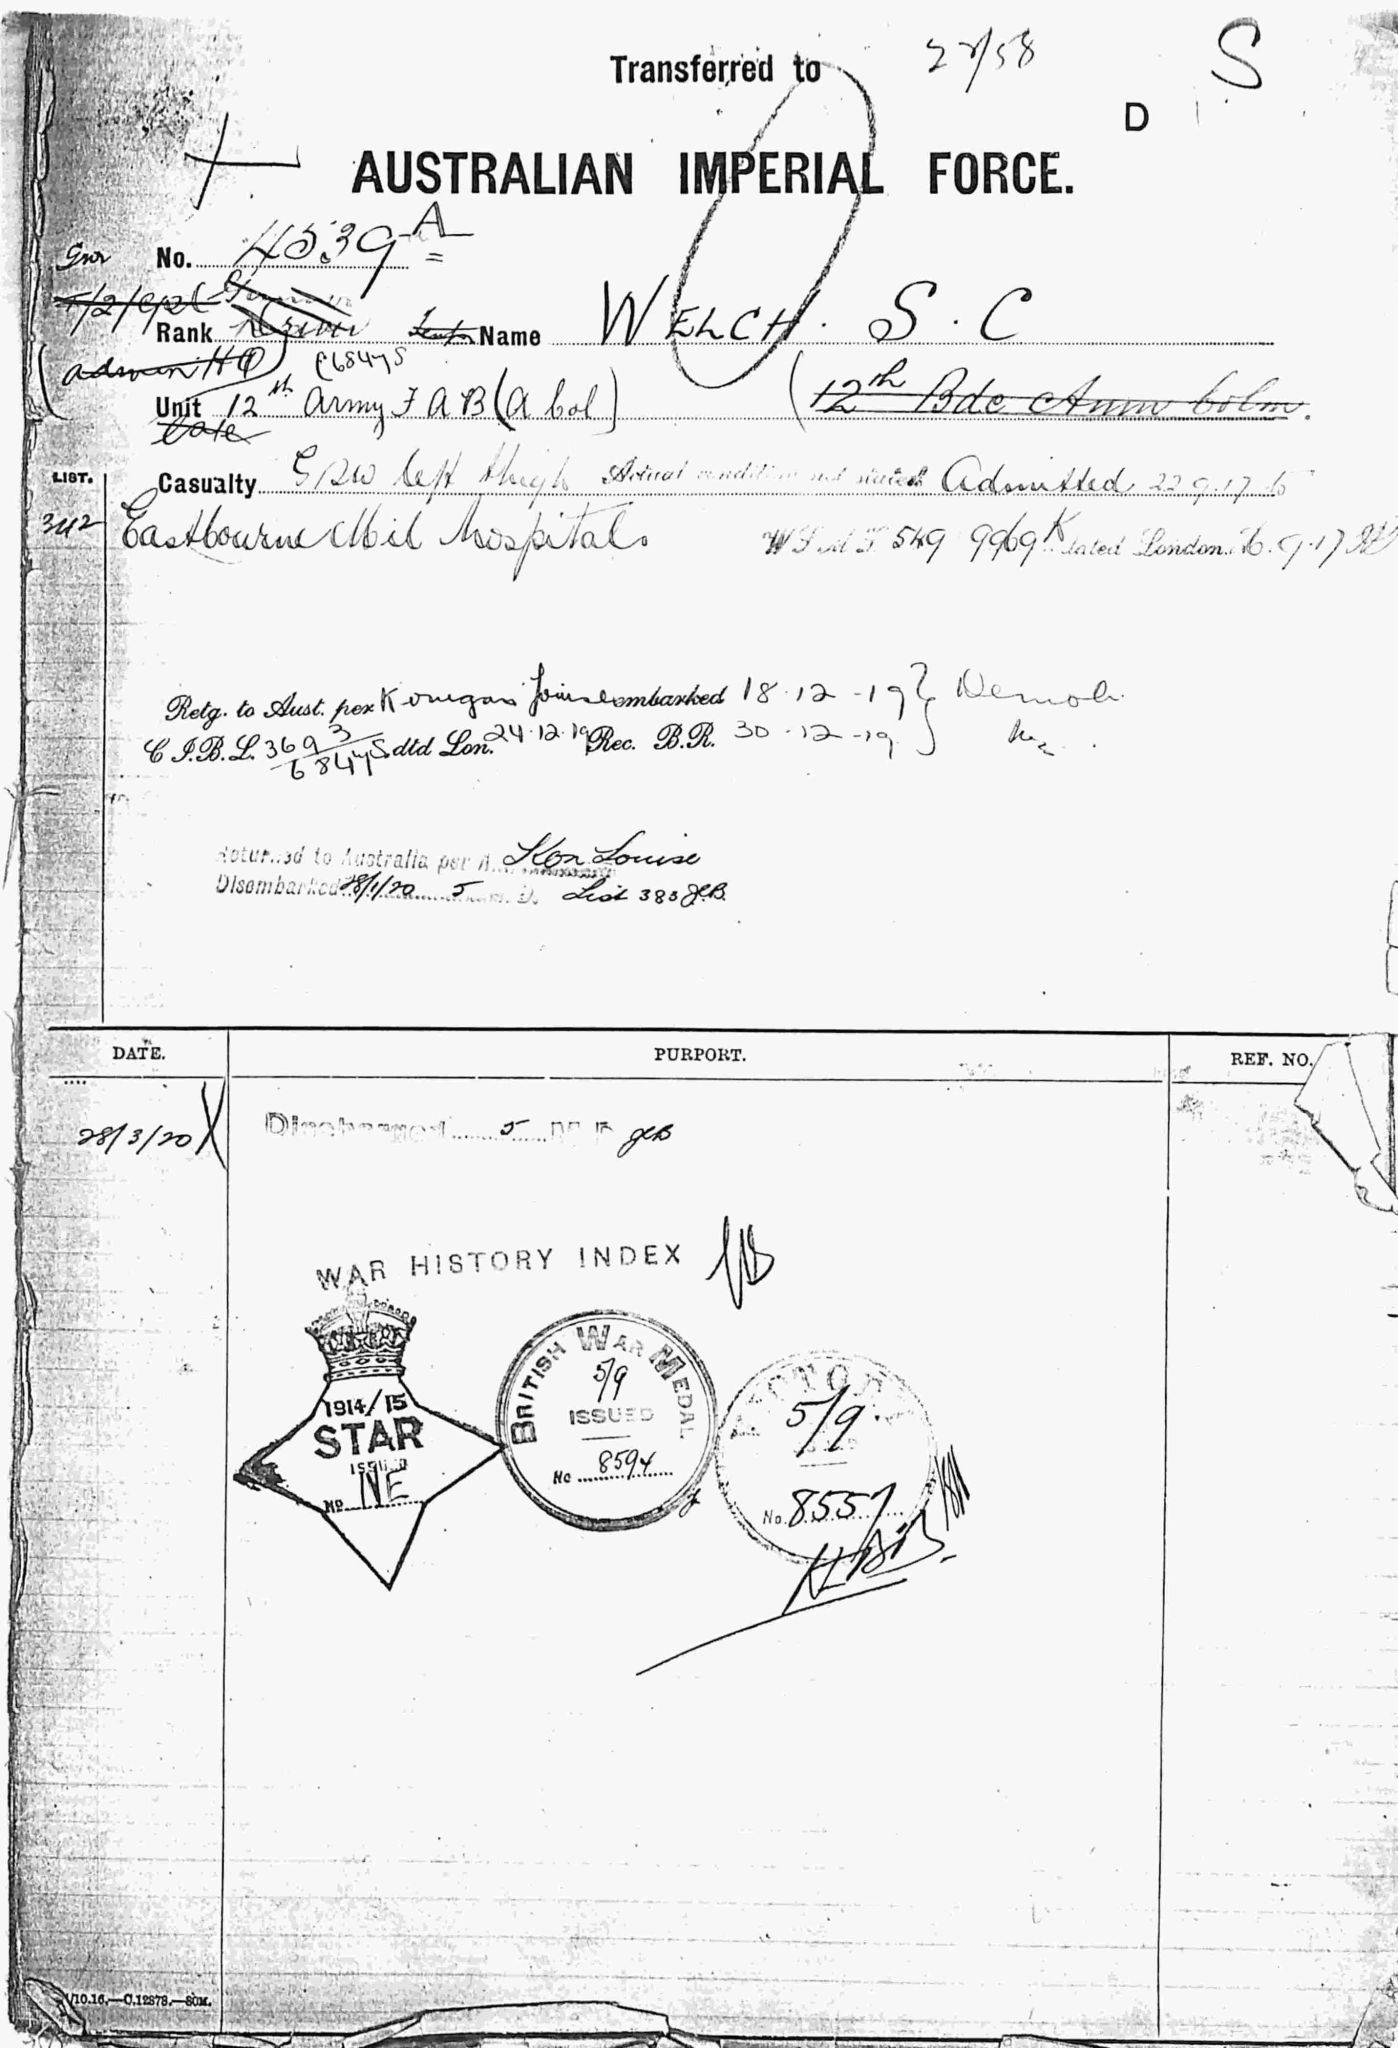 Transferred to
S
D
AUSTRALIAN IMPERIAL FORCE.
Gnr No. 4539 A
Rank Name WELCH. S. C
Admin HQ C6847S
Unit 12th Army F A B (A Col) (12th Bde Amm Colm.
LIST. Casualty GSW left thigh Actual condition not stated Admitted 22.9.17 to
342 Eastbourne Mil Hospital. 549 9969 K dated London. 26.9.17
Retg. to Aust. per Konigan Louise embarked 18.12-19 } Demob.
C.I.B.L. 3693/6847S dtd Lon. 24.12.19 Rec. B.R. 30.12-19
Returned to Australia per Kon Louise
Disembarked 28/1/20 5 M.D. List 383 JCB.
DATE. PURPORT. REF. NO.
28/3/20 X Discharged 5 M D JCB
WAR HISTORY INDEX
1914/15
STAR
ISSUED
No. NE
BRITISH WAR MEDAL
5/9
ISSUED
No 8594
VICTORY
5/9
No. 8557
/10.16.—C.12878.—50M.